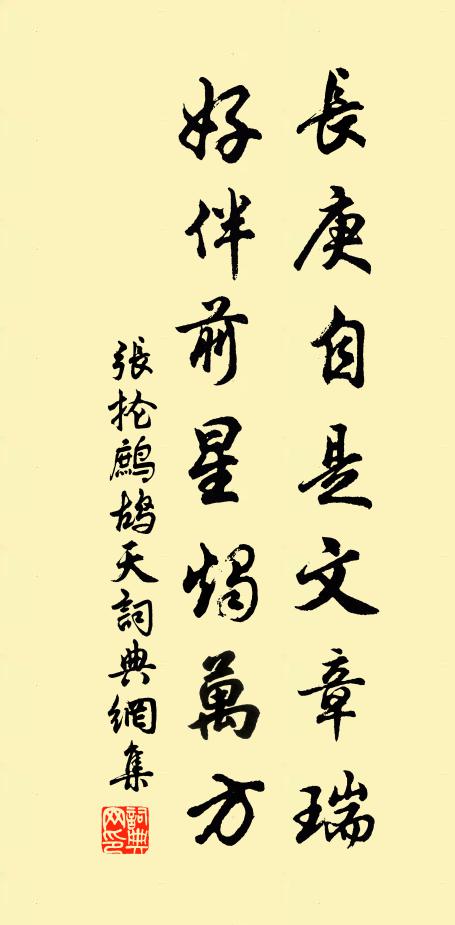 長庚自是文章瑞
好伴前星燭萬方
張抡鷓鴣天詞典網集
詞典网印